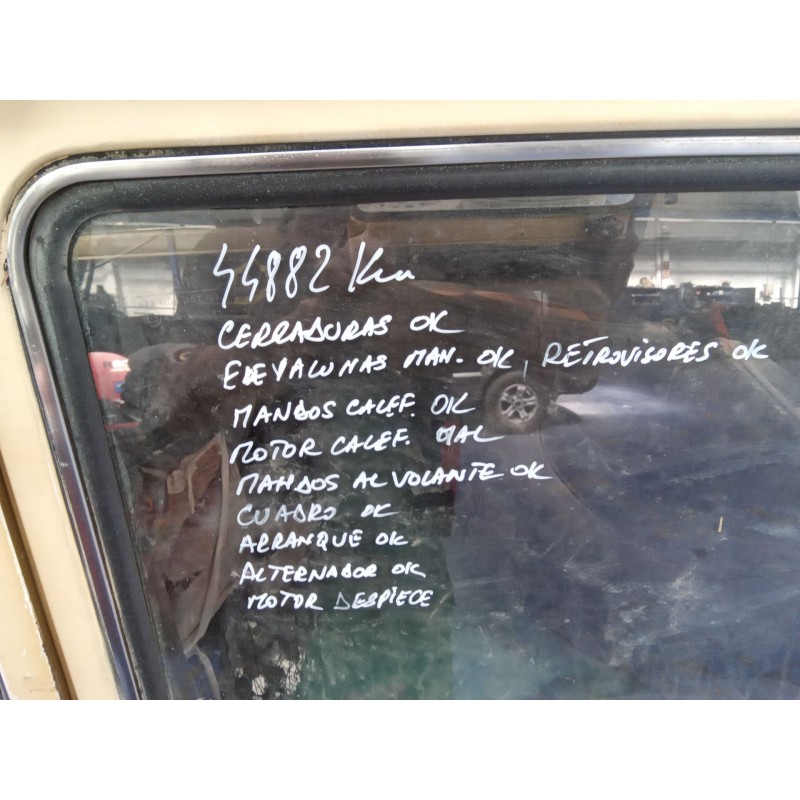 44882 Km
CERRADURAS OK
ELEVALUNAS MAN. OK, RETROVISORES OK
MANDOS CALEF. OK
MOTOR CALEF. MAL
MANDOS AL VOLANTE OK
CUADRO OK
ARRANQUE OK
ALTERNADOR OK
MOTOR DESPIECE